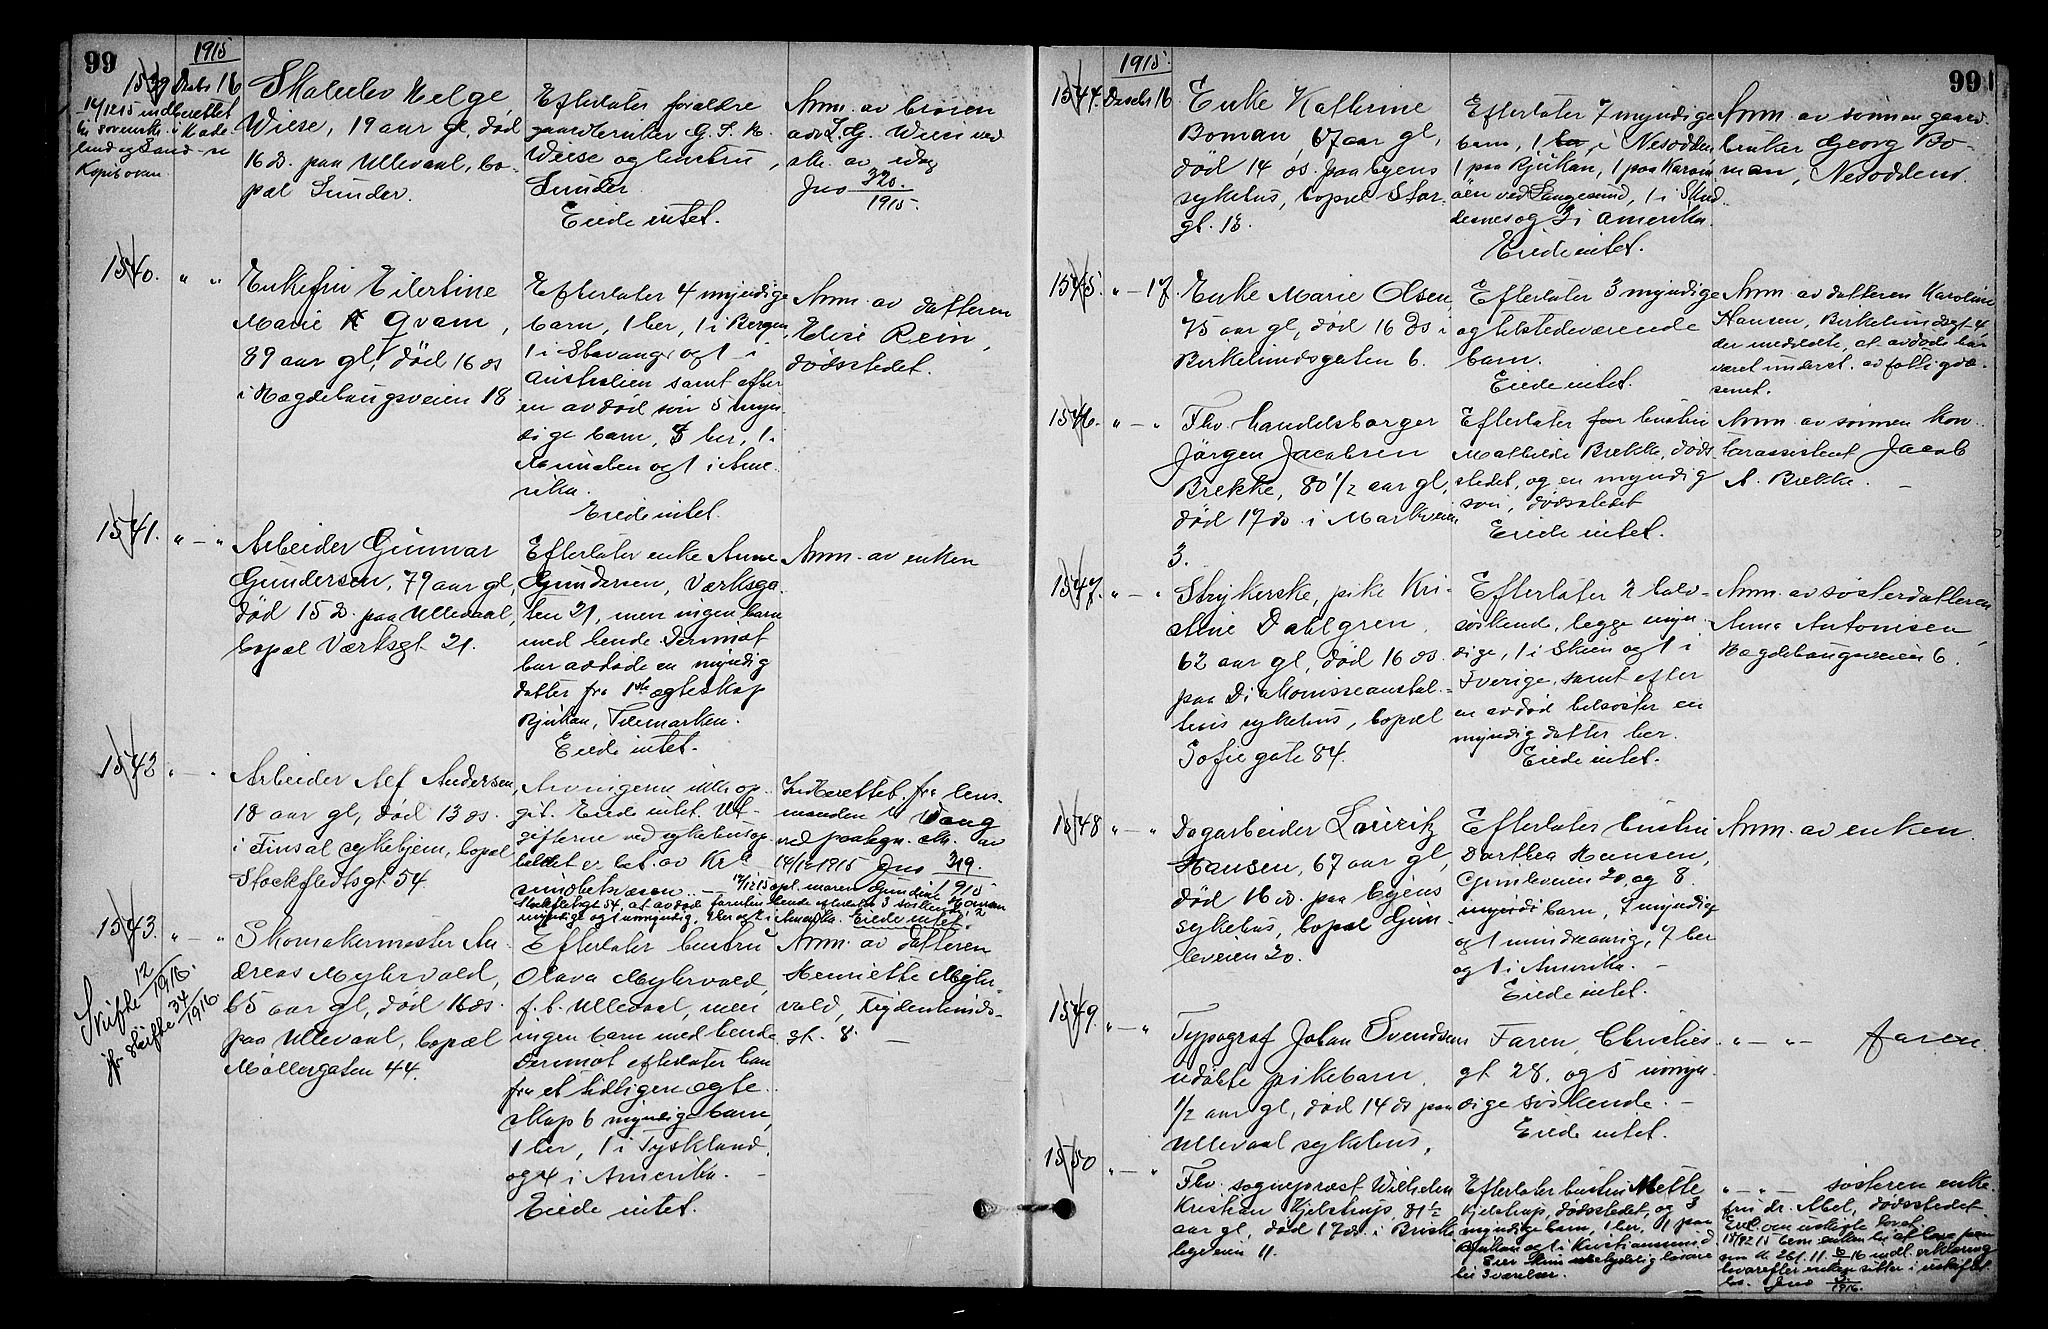 99
1915
1539 Decbr 16
14/12 15 indberettet
Kopib oven.
Skoleelev Helge
Wiese, 19 aar gl, död
16 ds. paa Ullevaal, bo-
pæl Sunder.
Efterlater forældre
gaardbruker G. S. K.
Wiese og hustru,
Sunder.
Eiede intet.
Anm. av broren
Wiese ved
sk. av idag
Jno 320.
1915.
1540. " "
Enkefru Eilertine
Marie Qvam,
89 aar gl, död 16 ds
i Hagdehaugsveien 18
Efterlater 4 myndige
barn, 1 her, 1 i Bergen
1 i Stavanger og 1 i
Australien samt efter
en avdöd sön 5 myn-
dige barn, 3 her, 1 i
og 1 i Ame-
rika.
Eiede intet.
Anm. av datteren
Elise Rein,
dödsstedet.
1541. " — "
Arbeider Gunnar
Gundersen, 79 aar gl,
död 15 ds. paa Ullevaal,
bopæl Værksgt 21.
Efterlater enke Anne
Gundersen, Værksga-
ten 21, men ingen barn
med hende Derimot
har avdöde en myndig
datter fra 1ste egteskap
Rjukan, Telemarken.
Eiede intet.
Anm. av enken
1542 " — "
Arbeider Alf Andersen,
18 aar gl, död 13 ds.
i Finsal sykehjem, bopæl
Stockfledtsgt 54.
Arvingerne ikke op-
git. Eiede intet. Ut-
gifterne ved sykehusop-
holdet er bet. av Kra
sindbetvæsen. — 17/12 15 opl. maren Gundine Homan
Stockfledtsgt 54, at avdöde foruten hende efterlater 3 söskende, 2
myndige og 1 umyndig, 2 her og 1 i Amerika. Eiede intet.
Indberettet fra lens-
manden i Vang
ved paategn. sk. av
14/12 1915 Jno 319.
915
1543. " — "
Skifte 12/1916.
jfr skifte 34/1916
Skomakermester An-
dreas Myhrvold,
65 aar gl, död 16 ds.
paa Ullevaal, bopæl
Möllergaten 44.
Efterlater hustru
Olava Myhrvold,
f. t. Ullevaal, men
ingen barn med hende
Derimot efterlater han
fra et tidligere egte-
skap 6 myndige barn,
1 her, 1 i Tyskland
og 4 i Amerika. —
Eiede intet.
Anm. av datteren
Henriette Myhr-
vold, Frydenlunds-
gt. 8. —
991
1915.
1544. Decbr 16.
Enke Kathrine
Boman, 67 aar gl,
död 14 ds. paa byens
sykehus, bopæl Stor-
gt. 18.
Efterlater 7 myndige
barn, 1 i Nesodden
1 paa Rjukan, 1 paa
öen ved Langesund, 1 i Skud-
desnes og 3 i Amerika.
Eiede intet.
Anm. av sönnen gaard-
bruker Georg Bo-
man, Nesodden.
1545. " — 17.
Enke Marie Olsen
75 aar gl, död 16 ds i
Birkelundsgaten 6.
Efterlater 3 myndige
og tilstedeværende
barn.
Eiede intet.
Anm. av datteren Karoline
Hansen, Birkelundsgt 4,
der meddelte, at avdöde har
været underst. av fattigvæ-
senet.
1546. " — "
Fhv. handelsborger
Jörgen Jacobsen
Brekke, 80 1/2 aar gl,
död 17 ds. i Markveien
3.
Efterlater hustru
Mathilde Brekke, döds-
stedet, og en myndig
sön, dödsstedet
Eiede intet.
Anm. av sönnen kon-
torassistent Jacob
A. Brekke. —
1547. " — "
Strykerske, pike Kri-
stine Dahlgren,
62 aar gl, död 16 ds.
paa Diakonisseanstal-
tens sykehus, bopæl
Sofiegate 84.
Efterlater 2 halv-
söskende, begge myn-
dige, 1 i Skien og 1 i
Sverige, samt efter
en avdöd helsöster en
myndig datter her.
Eiede intet.
Anm. av sösterdatteren
Anna Antonisen,
Hagdehaugsveien 6.
1548 " — "
Dagarbeider Lauritz
Hansen, 67 aar gl,
död 16 ds. paa byens
sykehus, bopæl Grün-
leveien 20.
Efterlater hustru
Dorthea Hansen,
Grünleveien 20, og 8
barn, 7 myndige
og 1 mindreaarig, 7 her
og 1 i Amerika. —
Eiede intet.
Anm. av enken
1549. " — "
Typograf Johan Svendsens
udöbte pikebarn,
1/2 aar gl, död 14 ds paa
Ullevaal sykehus,
Faren, Christies-
gt 28, og 5 umyn-
dige söskende. —
Eiede intet.
" — " — faren.
1550 " — "
Fhv. sogneprest Wilhelm
Kristian Kjelstrup, 81 1/2
aar gl, död 17 ds. i Briske-
byveien 11.
Efterlater hustru Mette
Kjelstrup, dödsstedet, og 3
myndige barn, 1 her, 1 paa
Rjukan og 1 i Kristianssund
Eier kun ubetydelig lösöre
til 3 værelser.
" — " — sösteren enke-
fru dr. Abel, dödsstedet.
sitter i uskiftet
bo. Jno
1916.